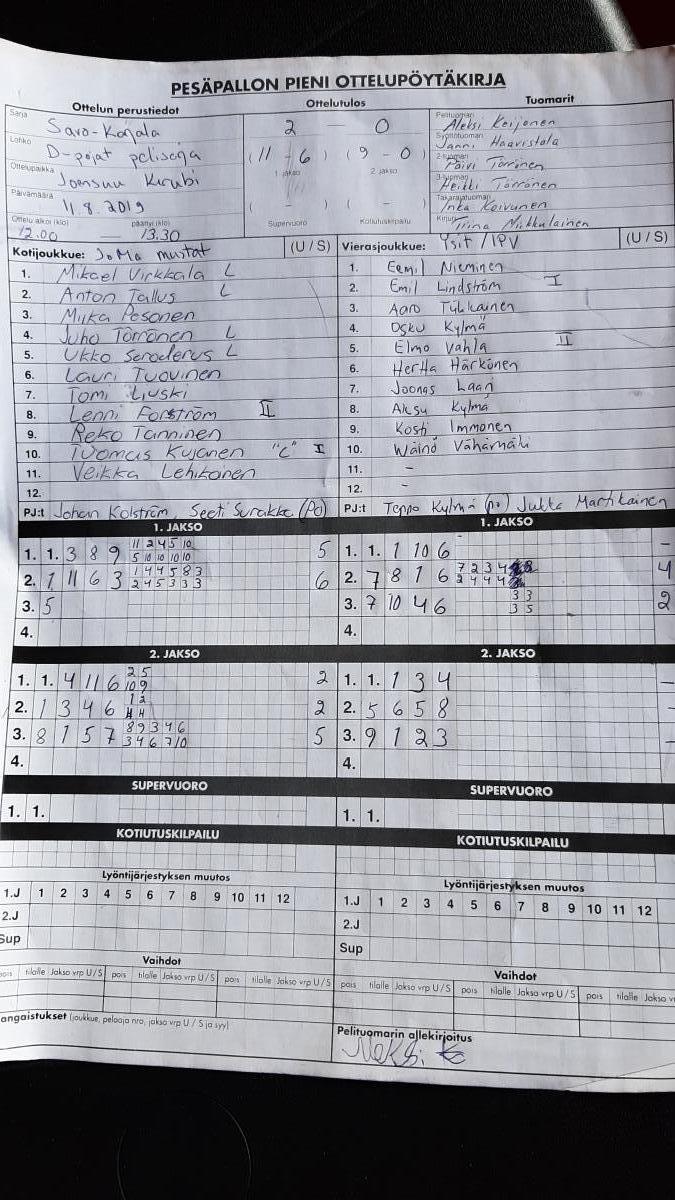 PESÄPALLON PIENI OTTELUPÖYTÄKIRJA
Ottelun perustiedot
Ottelutulos
Tuomarit
Sarja Savo-Karjala
Lohko D-pojat pelisarja
Ottelupaikka Joensuu Kurubi
Päivämäärä 11.8.2019
Ottelu alkoi (klo) 12.00 päättyi (klo) 13.30
2 — 0
(11 - 6) (9 - 0)
1 jakso 2 jakso
( - ) ( - )
Supervuoro Kotiutuskilpailu
Pelituomari Aleksi Keijonen
Syöttötuomari Janni Haavistola
2-tuomari Päivi Törrönen
3-tuomari Heikki Törrönen
Takarajatuomari Inka Koivunen
Kirjuri Tiina Mikkulainen
Kotijoukkue: JoMa mustat (U / S)
1. Mikael Virkkala L
2. Anton Jallus L
3. Miika Pesonen
4. Juho Törrönen L
5. Ukko Seroderus L
6. Lauri Tuovinen
7. Tomi Liuski
8. Lenni Forsström II
9. Reko Tanninen
10. Tuomas Kujanen "C" I
11. Veikka Lehikonen
12.
PJ:t Johan Kolström, Seeti Surakka (PO)
Vierasjoukkue: Ysit / IPV (U / S)
1. Eemil Nieminen
2. Emil Lindström I
3. Aaro Tykkainen
4. Osku Kylmä
5. Elmo Vahla II
6. Hertta Härkönen
7. Joonas Laari
8. Aksu Kylmä
9. Kosti Immonen
10. Wäinö Vähämäki
11. -
12. -
PJ:t Teppo Kylmä (po) Jukka Martikainen
1. JAKSO
1. 1. 3 8 9 11 2 4 5 10 5
5 10 10 10 10
2. 1 11 6 3 1 4 4 5 8 3 6
2 4 5 3 3 3
3. 5
4.
1. JAKSO
1. 1. 1 10 6 -
2. 7 8 1 6 7 2 3 4 4
2 4 4 4
3. 7 10 4 6 3 3 2
3 5
4.
2. JAKSO
1. 1. 4 11 6 2 5 2
10 9
2. 1 3 4 6 1 2 2
4 4
3. 8 1 5 7 8 9 3 4 6 5
3 4 6 7 10
4.
2. JAKSO
1. 1. 1 3 4 -
2. 5 6 5 8 -
3. 9 1 2 3 -
4.
SUPERVUORO
1. 1.
SUPERVUORO
1. 1.
KOTIUTUSKILPAILU
KOTIUTUSKILPAILU
Lyöntijärjestyksen muutos
1.J 1 2 3 4 5 6 7 8 9 10 11 12
2.J
Sup
Lyöntijärjestyksen muutos
1.J 1 2 3 4 5 6 7 8 9 10 11 12
2.J
Sup
Vaihdot
pois tilalle Jakso vrp U / S pois tilalle Jakso vrp U / S pois tilalle Jakso vrp U / S
Vaihdot
pois tilalle Jakso vrp U / S pois tilalle Jakso vrp U / S pois tilalle Jakso vr
angaistukset (joukkue, pelaaja nro, jakso vrp U / S ja syy)
Pelituomarin allekirjoitus